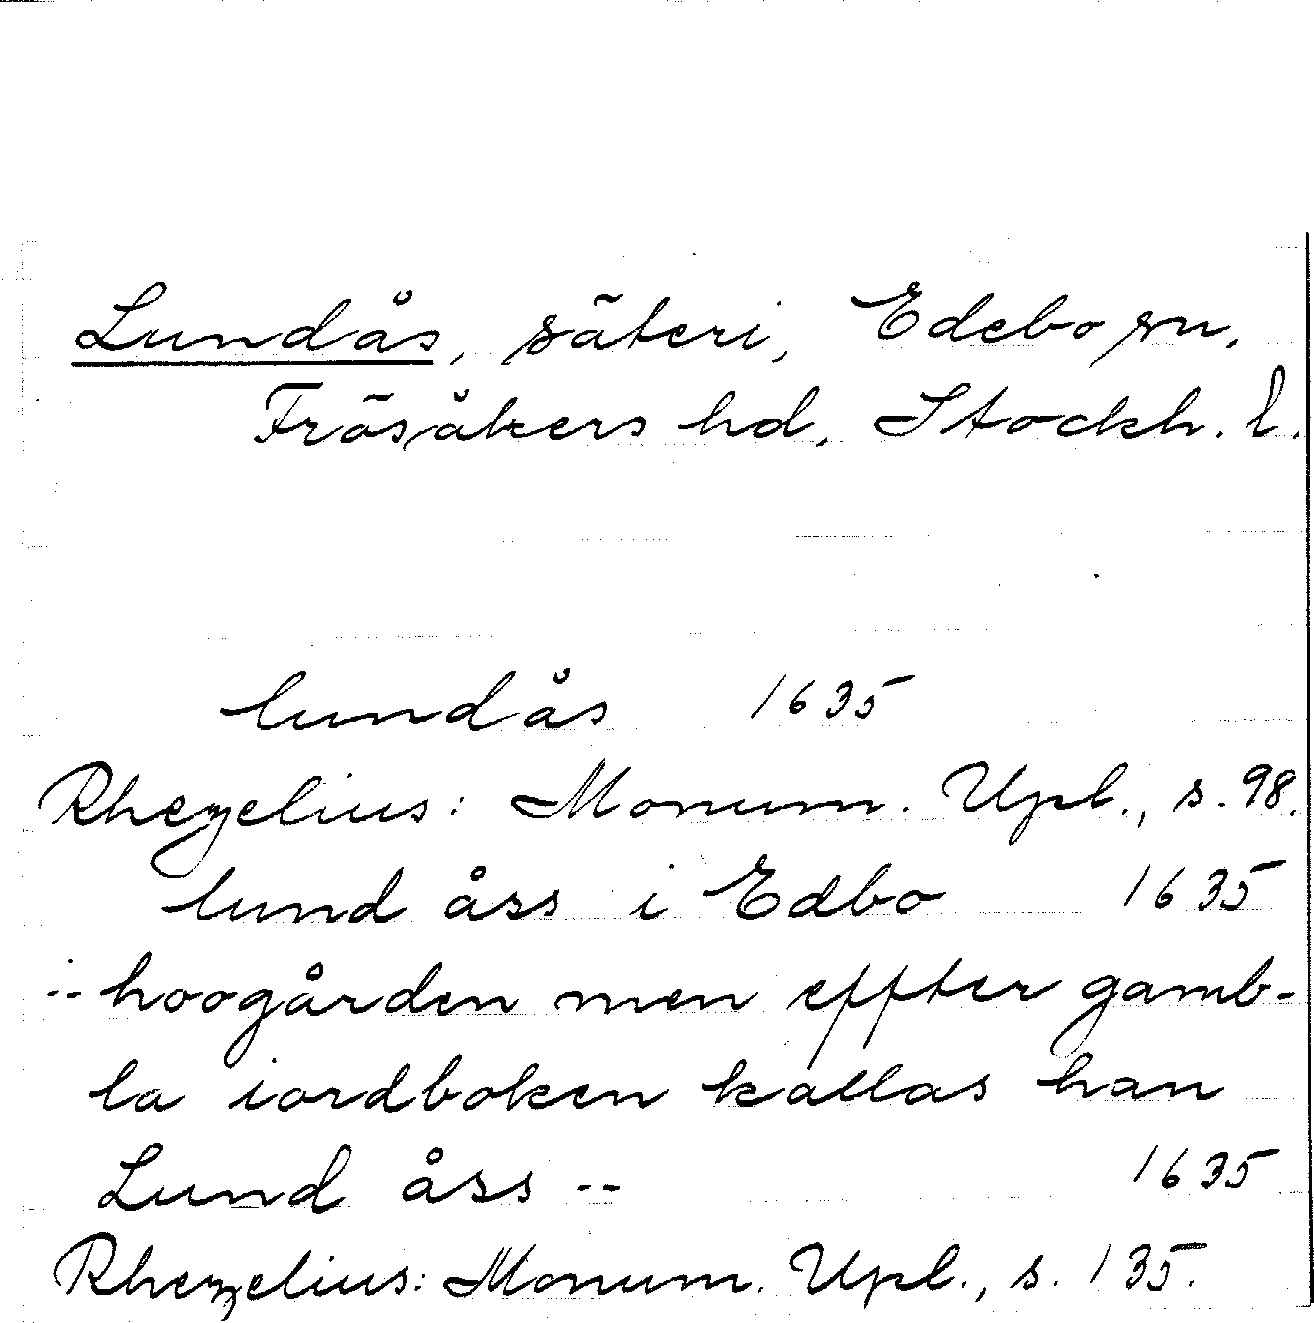 Lundås, säteri, Edebo sn.
Frösåkers hd, Stockh. l.
lundås 1635
Rhezelius: Monum. Upl., s. 98.
lund åss i Edbo 1635
-- hoogården men effter gamb-
la iordboken kallas han
Lund åss -- 1635
Rhezelius: Monum. Upl., s. 135.